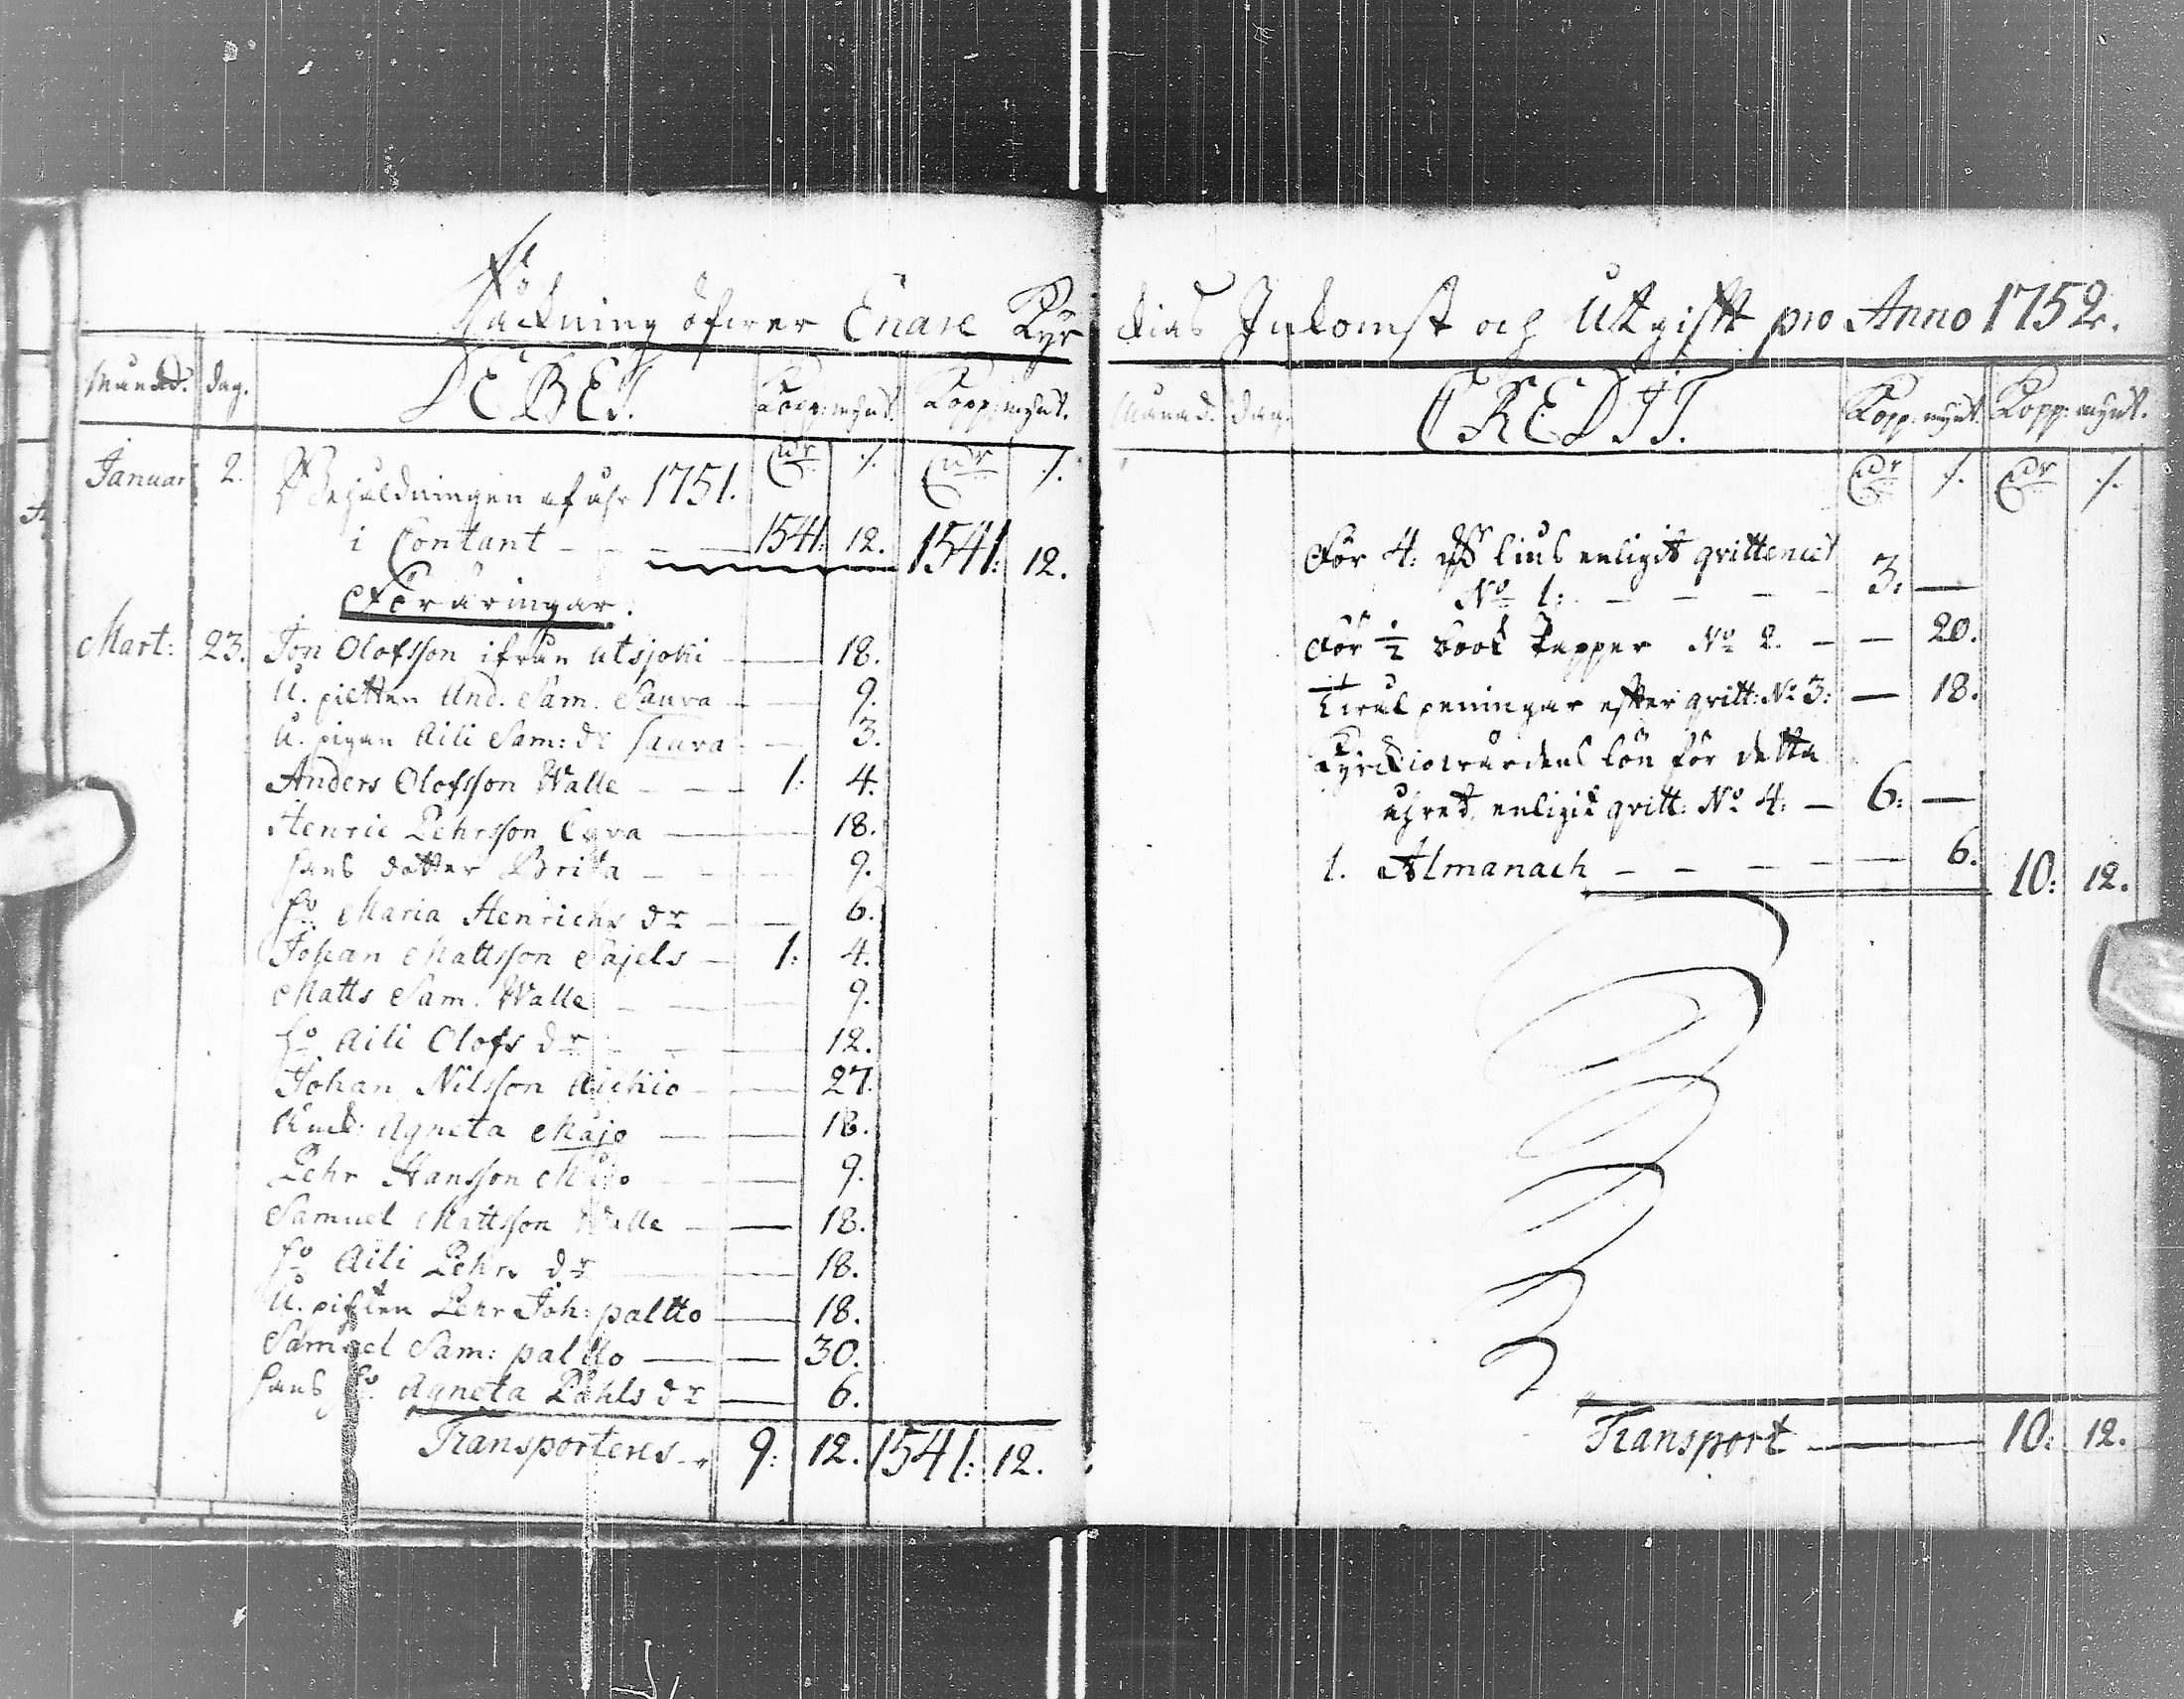 Räckning öfwer Enare Kyr
Månad. dag. DEBET. Kopp:mynt. Kopp:mynt.
Cdr ./. Cdr ./.
Januar 2. Behåldningen af åhr 1751.
i Contant 1541: 12. 1541: 12.
Föräringar.
Mart: 23. Jon Olofsson ifrån Utsjoki 18.
U. And. Sam. Saura 9.
U. pigan Aili Sam: dr Saura 3.
Anders Olofsson Walle 1: 4.
Henric Pehrsson 18.
hans dotter Brita 9.
ho Maria Henrichs dr 6.
Johan Mattsson Sajels 1: 4.
Matts Sam. Walle 9.
ho Aili Olofs dr 12.
Johan Nilsson Aikio 27.
Agneta Majo 18.
Pehr Hansson 9.
Samuel Mattsson Walle 18.
ho Aili Pehrs dr 18.
U. Pehr Joh: paltto 18.
Samuel Sam: paltto 30.
hans ho Agneta Påhls dr 6.
Transporteres 9: 12. 1541: 12.
kias Inkomst och Utgifft pro Anno 1752.
Månad. dag. CREDIT. Kopp: mynt. Kopp: mynt.
Cdr ./. Cdr ./.
För 4: lius enligit qvittencet
No 1: 3: —
För ½ book Papper No 2. — 20.
peningar efter qvitt: No 3: — 18.
Kyrckiowärdens lön för detta
åhret, enligit qvitt: No 4: 6: —
1. Almanach 6. 10: 12.
Transport 10: 12.